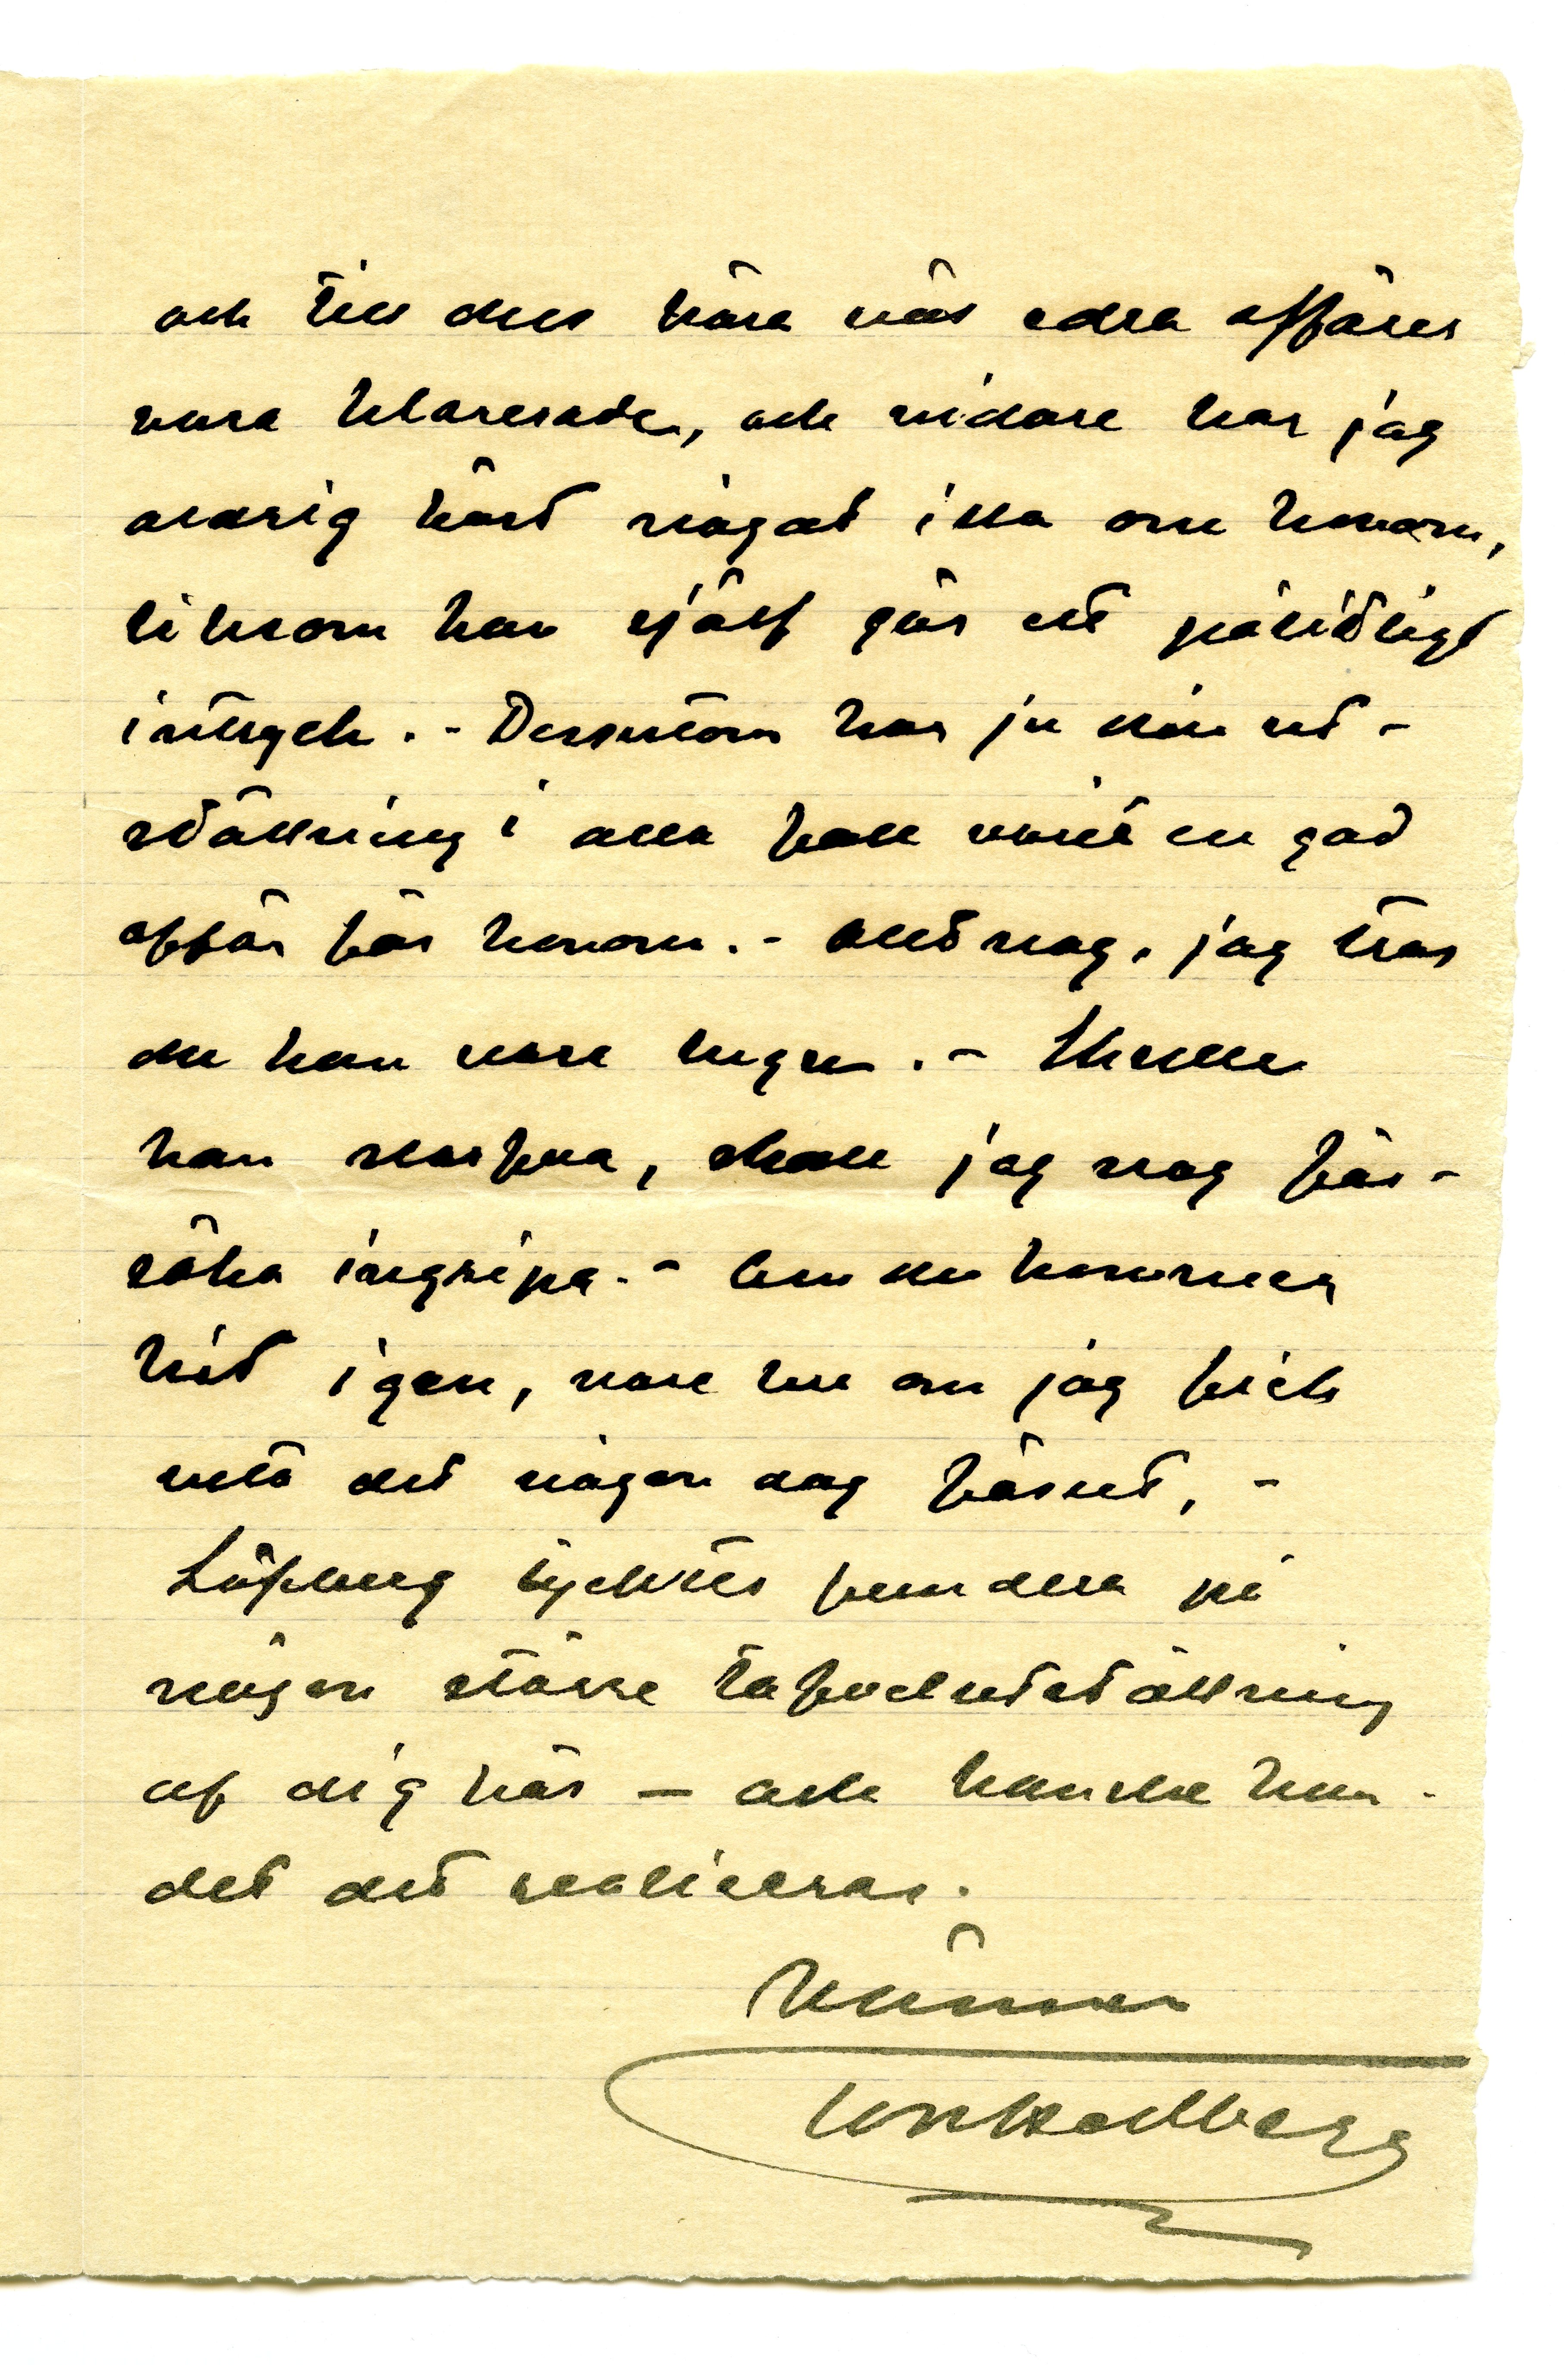 och till dess böra väl edra affärer
vara klarerade, och vidare har jag
aldrig hört något illa om honom,
liksom han själf gör ett pålitligt
intryck. - Dessutom har ju din ut-
ställning i alla fall varit en god
affär för honom. - Alltnog, jag tror
du kan vara lugn. - Skulle
han slarfva, skall jag nog för-
söka ingripa. - Om du kommer
hit igen, vore bra om jag fick
veta det någon dag förut, -
Löfberg tycktes fundera på
någon större tafvelutställning
af dig här — och kanske kun-
det det realiseras.
Vännen
Tor Hedberg